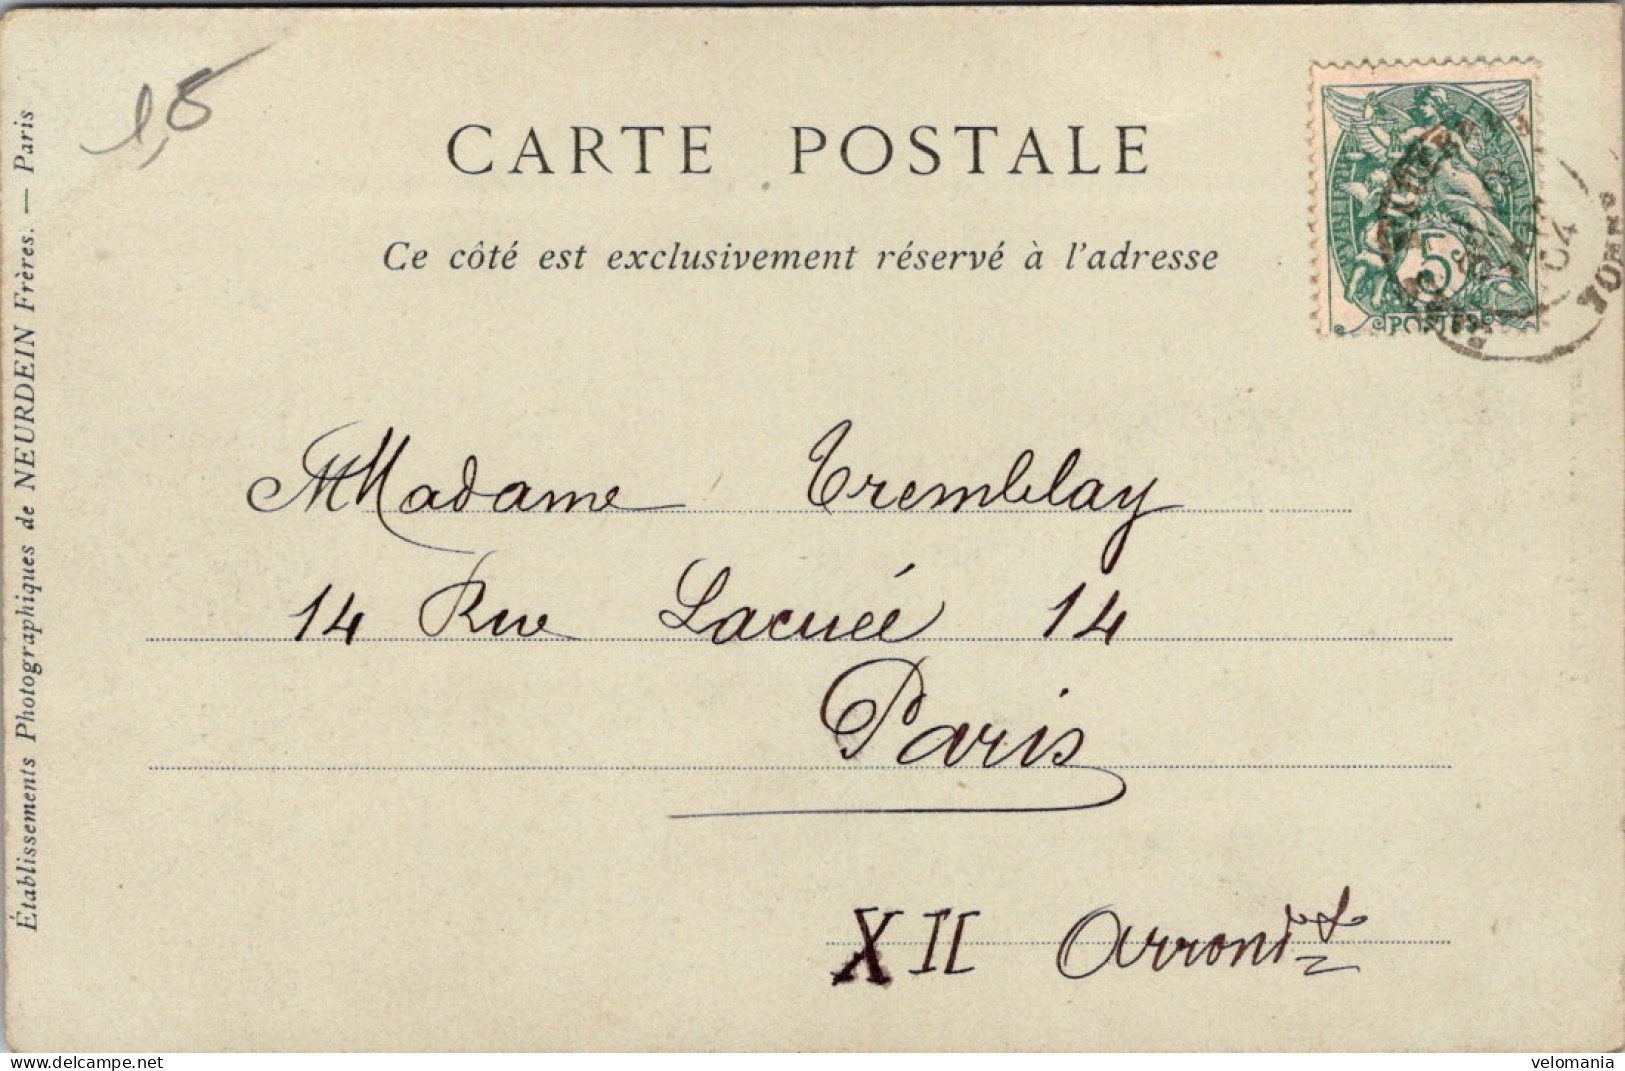 1,5
CARTE POSTALE
Ce côté est exclusivement réservé à l'adresse
5
POSTES
04
YONNE
Établissements Photographiques de NEURDEIN Frères. — Paris
Madame Tremblay
14 Rue Lacuée 14
Paris
XII Arrondt
www.delcampe.net
velomania